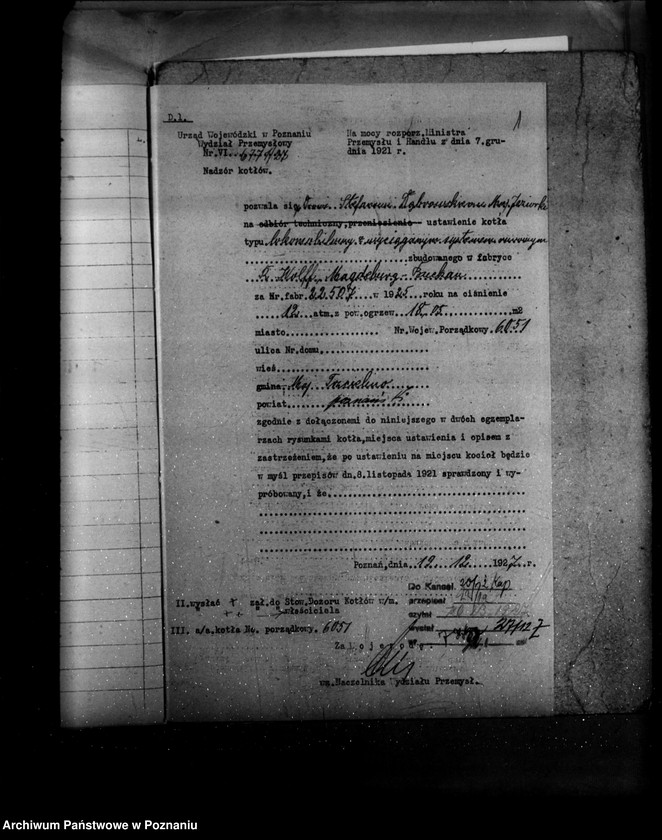 D.1.
1
Urząd Wojewódzki w Poznaniu
Wydział Przemysłowy
Nr.VI.
Nadzór kotłów.
Na mocy rozporz.Ministra
Przemysłu i Handlu z dnia 7.gru-
dnia 1921 r.
pozwala się Stefanowi Dąbrowskiemu Maj.
na odbiór techniczny,przeniesienie ustawienie kotła
typu lokomobilowy z wyciąganym systemem rurowym
zbudowanego w fabryce
R. Wolff. Magdeburg - Buckau
za Nr.fabr. 22507 w 1925 roku na ciśnienie
12 atm.z pow.ogrzew. m2
miasto Nr.Wojew.Porządkowy. 6051
ulica Nr.domu
wieś
gmina Maj.
powiat
zgodnie z dołączonemi do niniejszego w dwóch egzempla-
rzach rysunkami kotła,miejsca ustawienia i opisem z
zastrzeżeniem,że po ustawieniu na miejscu kocioł będzie
w myśl przepisów dn.8.listopada 1921 sprawdzony i wy-
próbowany,i że
Poznań,dnia 12. 12. 1927 r.
Do Kancel.
II.wysłać zał.do Stow.Dozoru Kotłów w/m.
właściciela
przepisał
czytał
wysłał 27/12 7
III. a/a.kotła No. porządkowy. 6051
Za Wojewodę.
wz.Naczelnika Wydziału Przemysł.
Archiwum Państwowe w Poznaniu